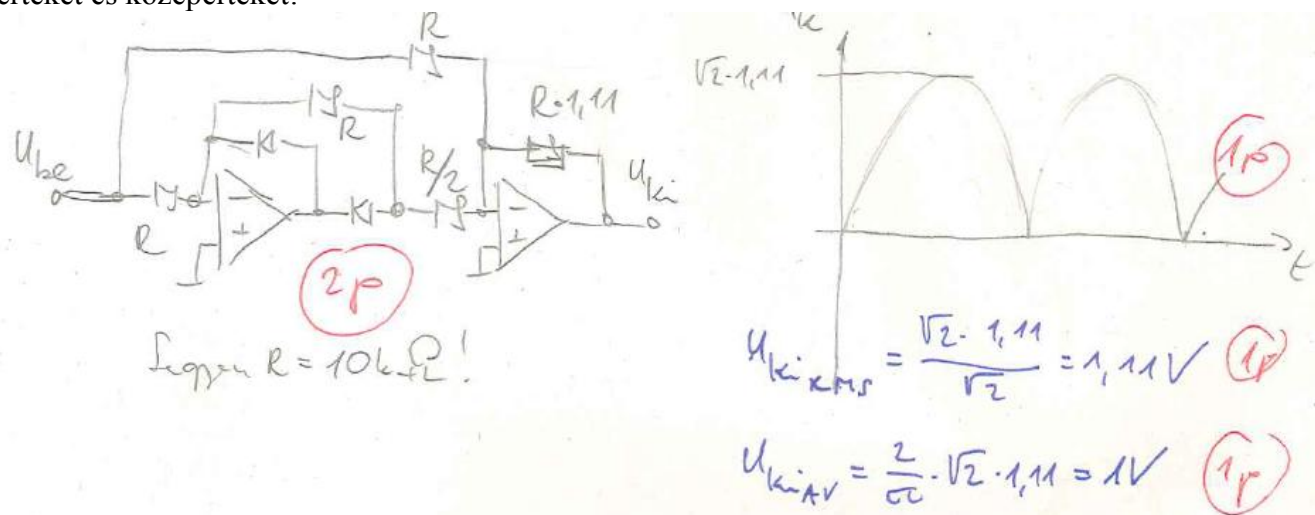 értéket és középértéket!
R
R
R·1,11
R/2
U_be
U_ki
R
-
+
-
+
2p
Legyen R = 10 kΩ!
√2·1,11
t
1p
U_ki RMS = √2·1,11 / √2 = 1,11 V
1p
U_ki AV = 2/π · √2 · 1,11 = 1V
1p